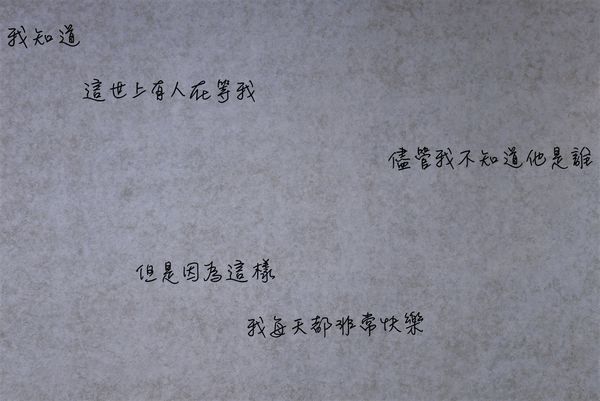 我知道
這世上有人在等我
儘管我不知道他是誰
但是因為這樣
我每天都非常快樂